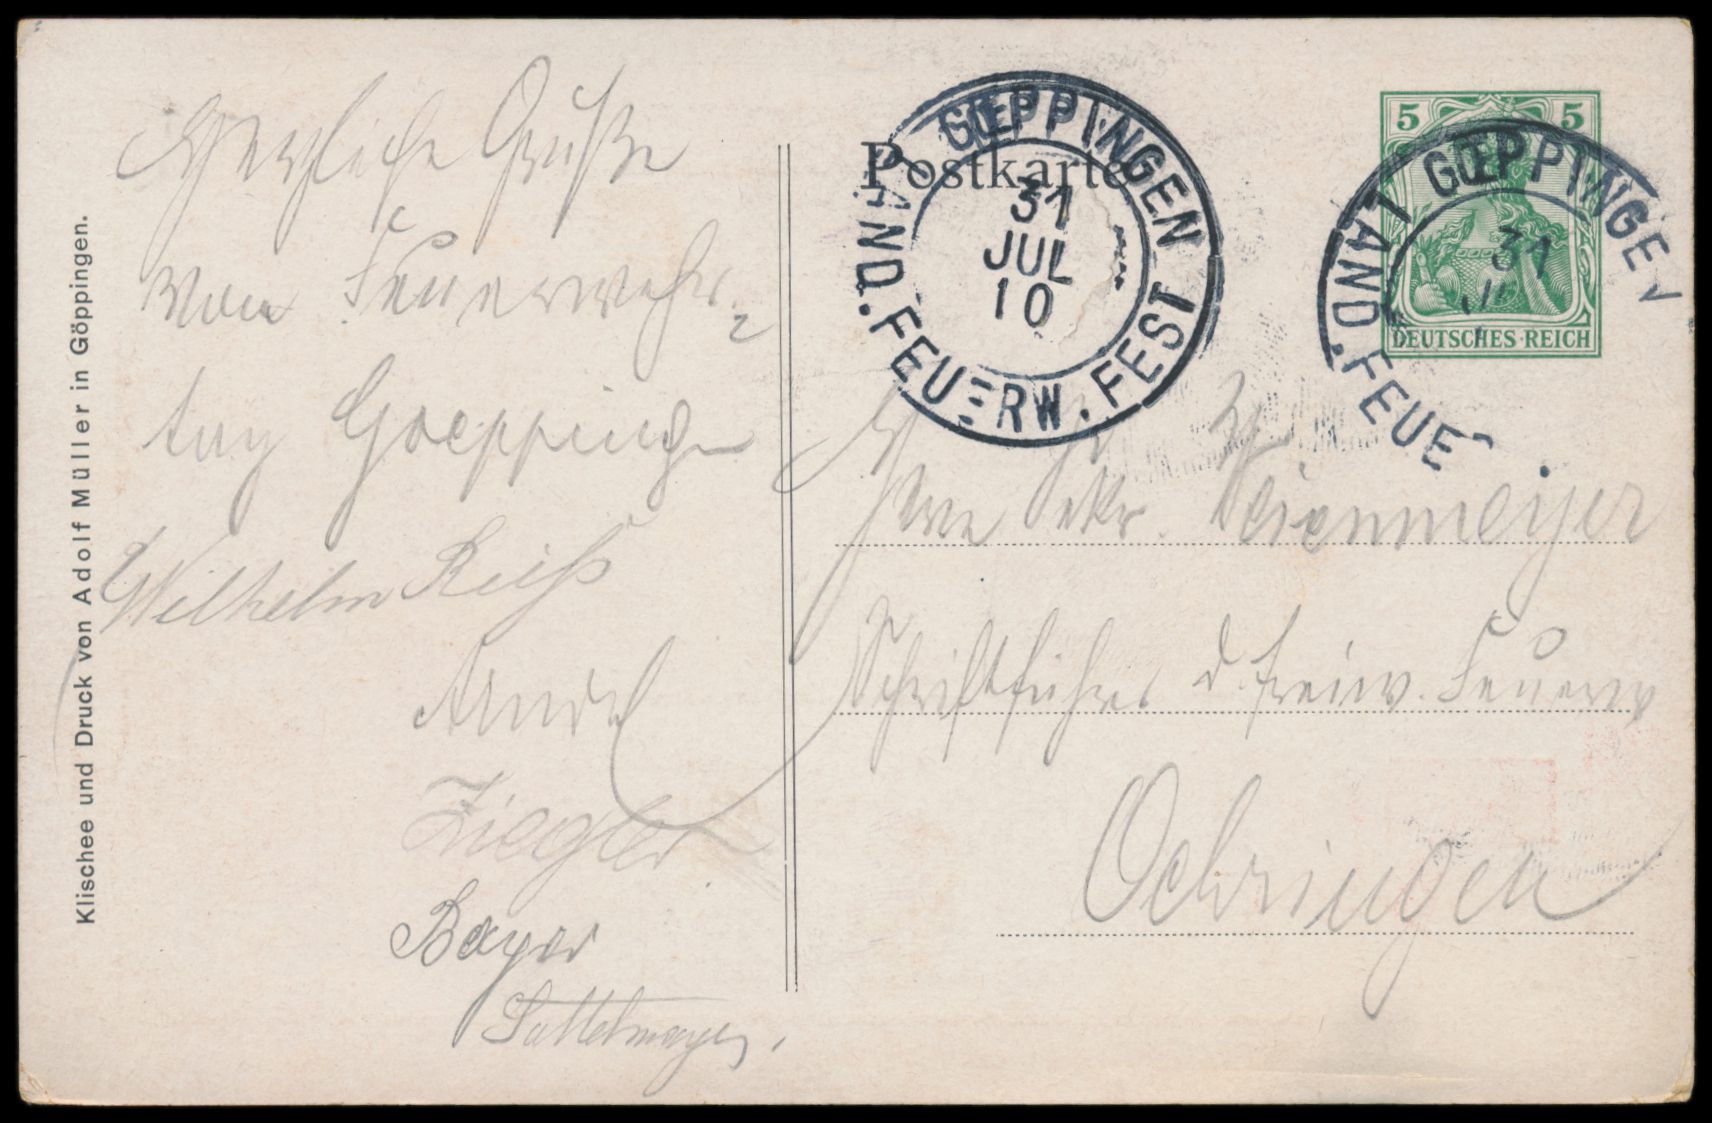 Klischee und Druck von Adolf Müller in Göppingen.
Herzliche Grüße
vom Feuerwehr-
tag Goeppingen
Wilhelm Reiß
Ziegler
Bayer
Sattelmayer.
Postkarte
GŒPPINGEN
31
JUL
10
LAND.FEUERW.FEST
5 5
DEUTSCHES REICH
GŒPPINGEN
31
LAND.FEUE
Schriftführer d. freiw. Feuerw
Oehringen